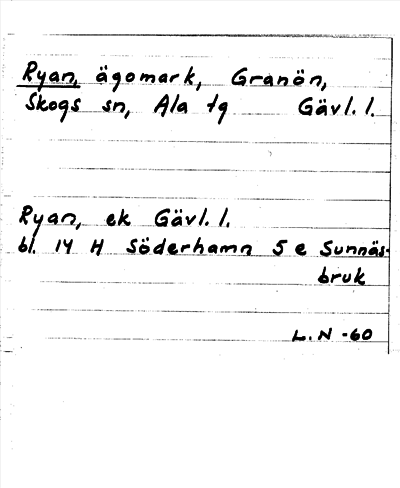 Ryan, ägomark, Granön,
Skogs sn, Ala tg Gävl. l.
Ryan, ek Gävl. l.
bl. 14 H Söderhamn 5 e Sunnäs-
bruk
L. N -60